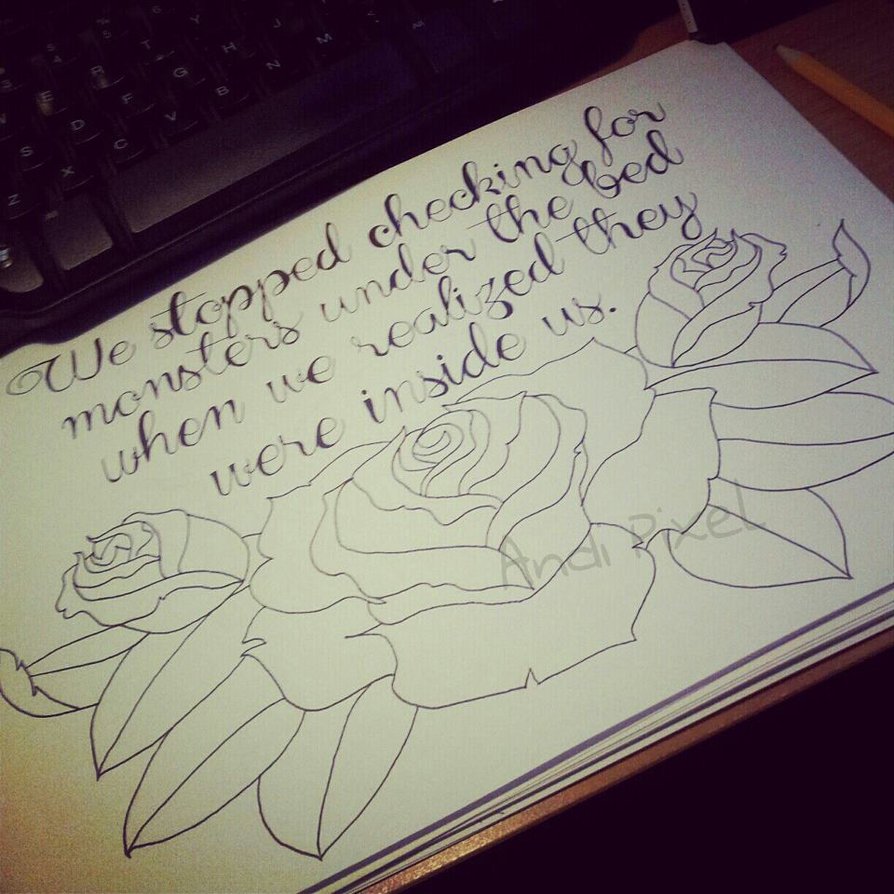 We stopped checking for
monsters under the bed
when we realized they
were inside us.
Andi Pixel
R T Y
D F G H J
S X C V B N M
Z